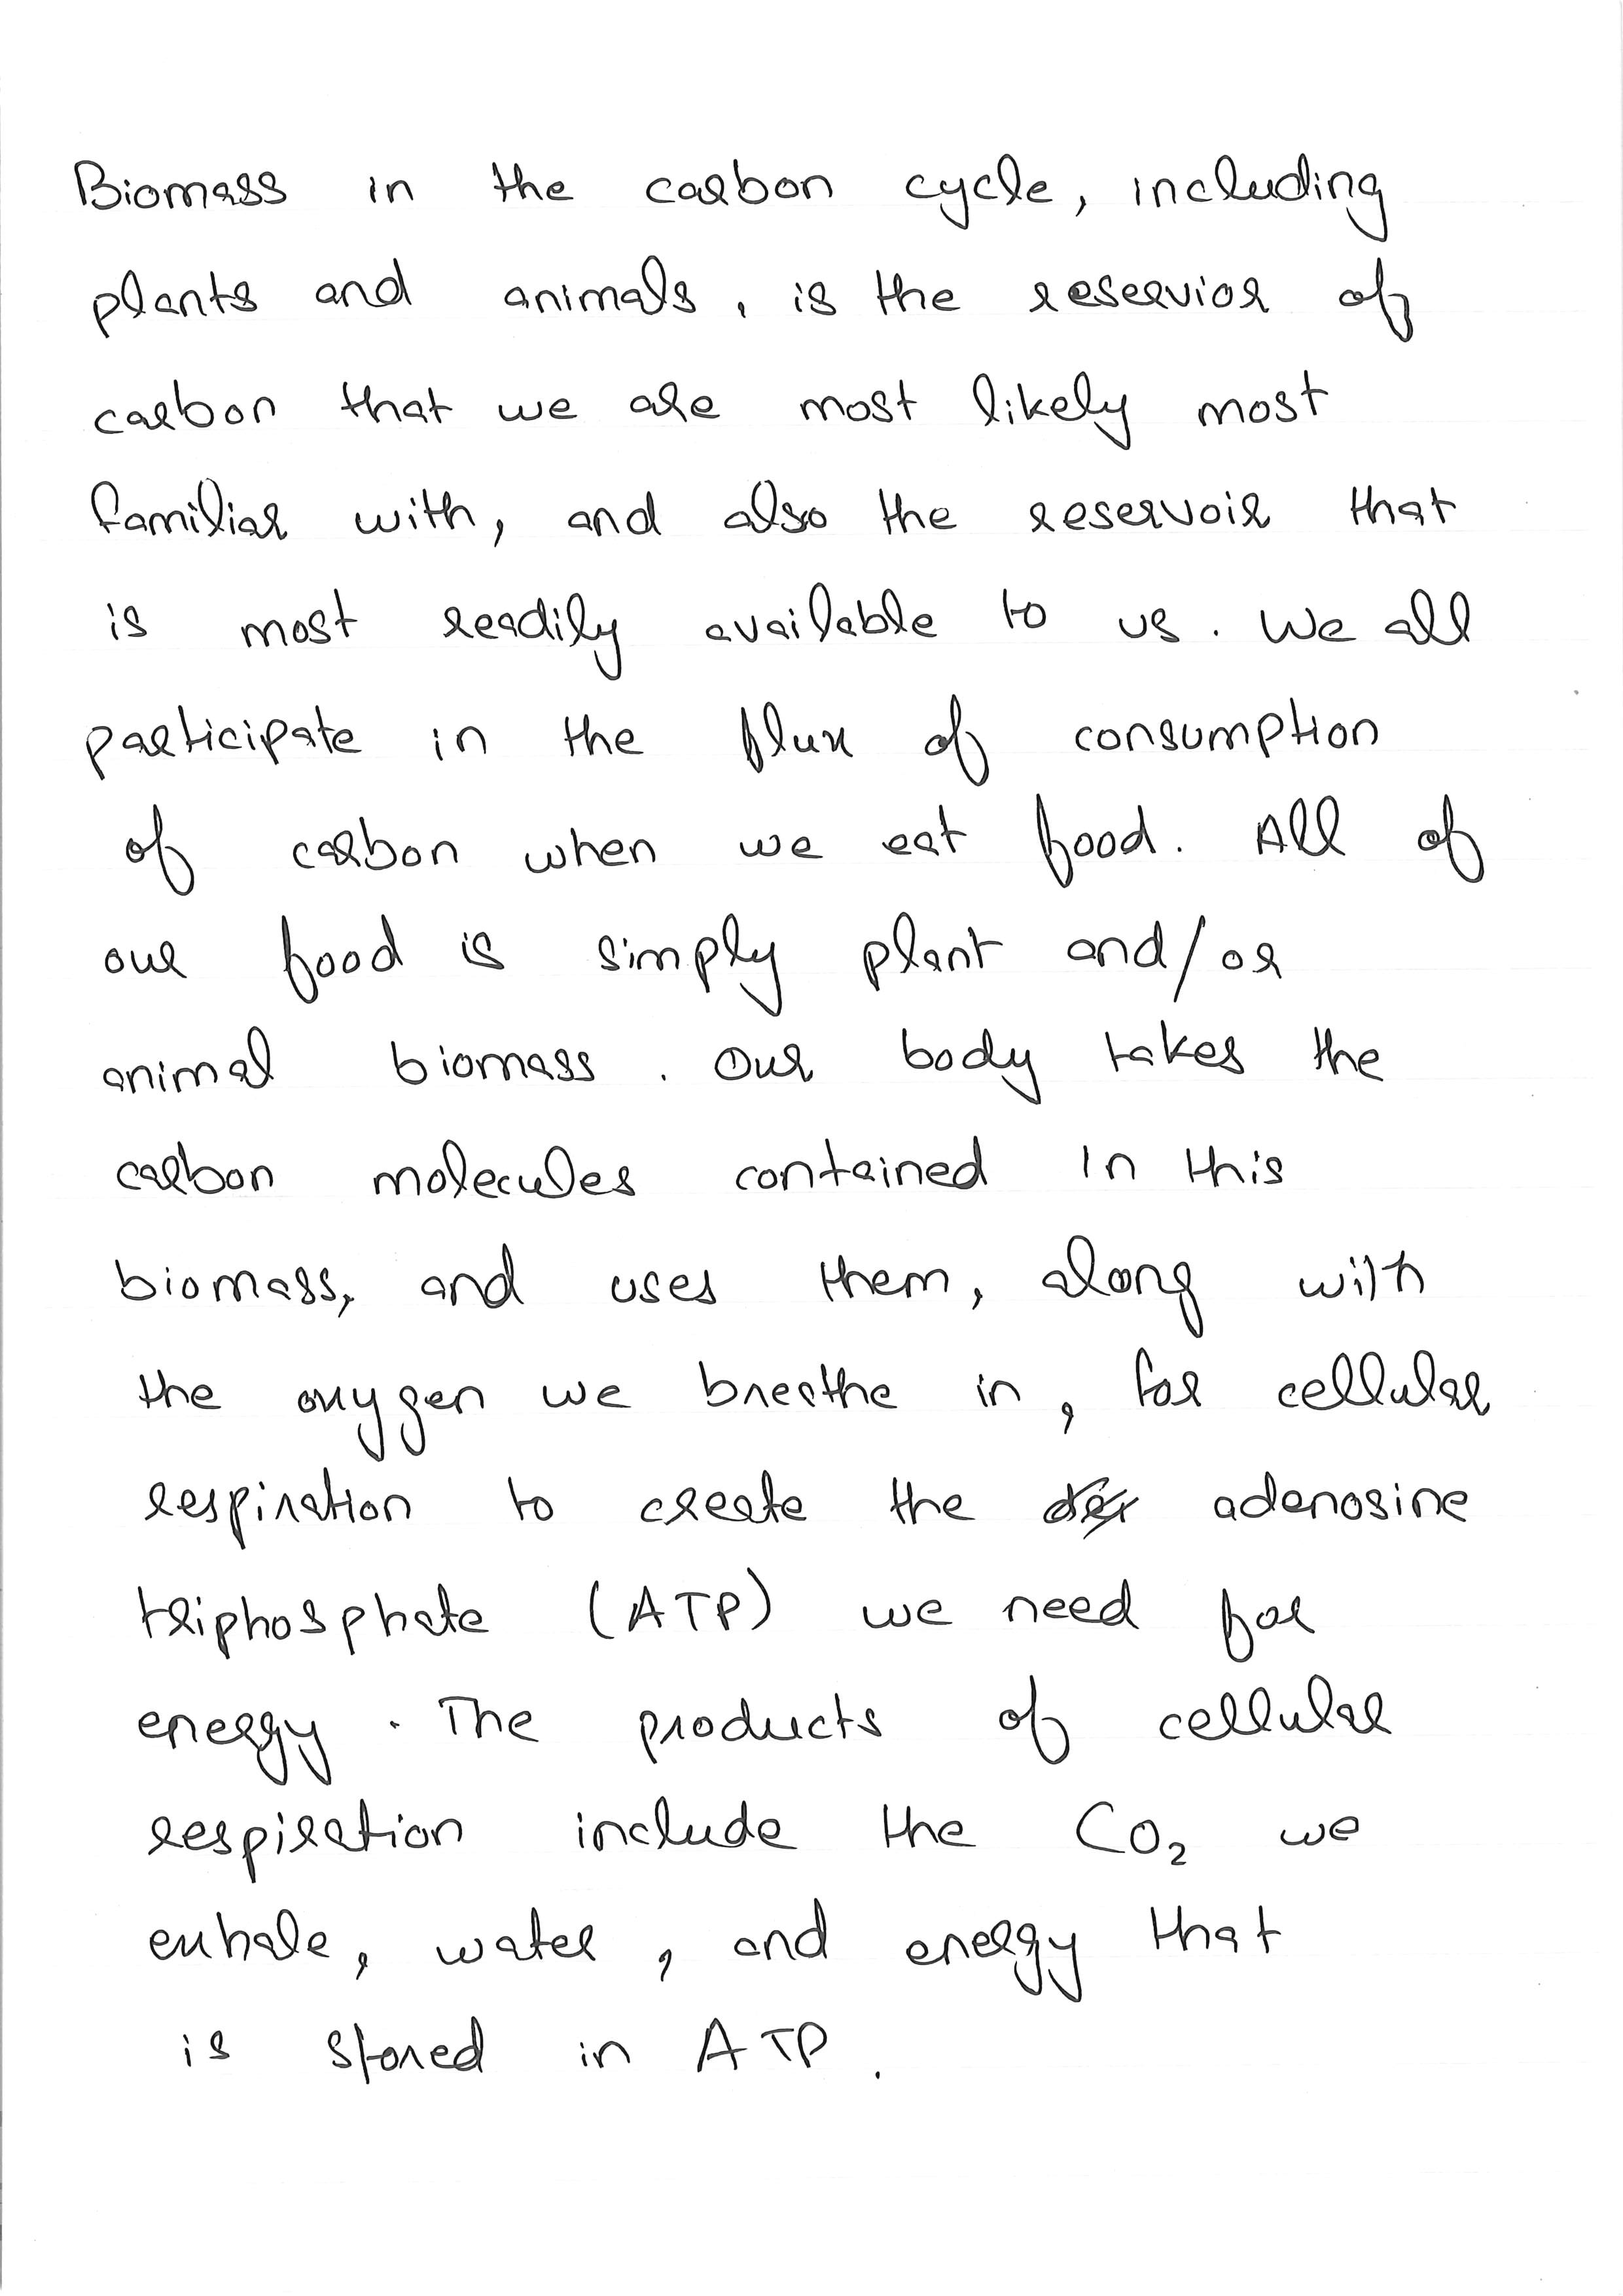 Biomass in the carbon cycle, including
plants and animals, is the reservior of
carbon that we are most likely most
familiar with, and also the reservoir that
is most readily available to us. We all
participate in the flux of consumption
of carbon when we eat food. All of
our food is simply plant and/or
animal biomass. Our body takes the
carbon molecules contained in this
biomass, and uses them, along with
the oxygen we breathe in, for cellular
respiration to create the adenosine
triphosphate (ATP) we need for
energy. The products of cellular
respiration include the CO₂ we
exhale, water, and energy that
is stored in ATP.